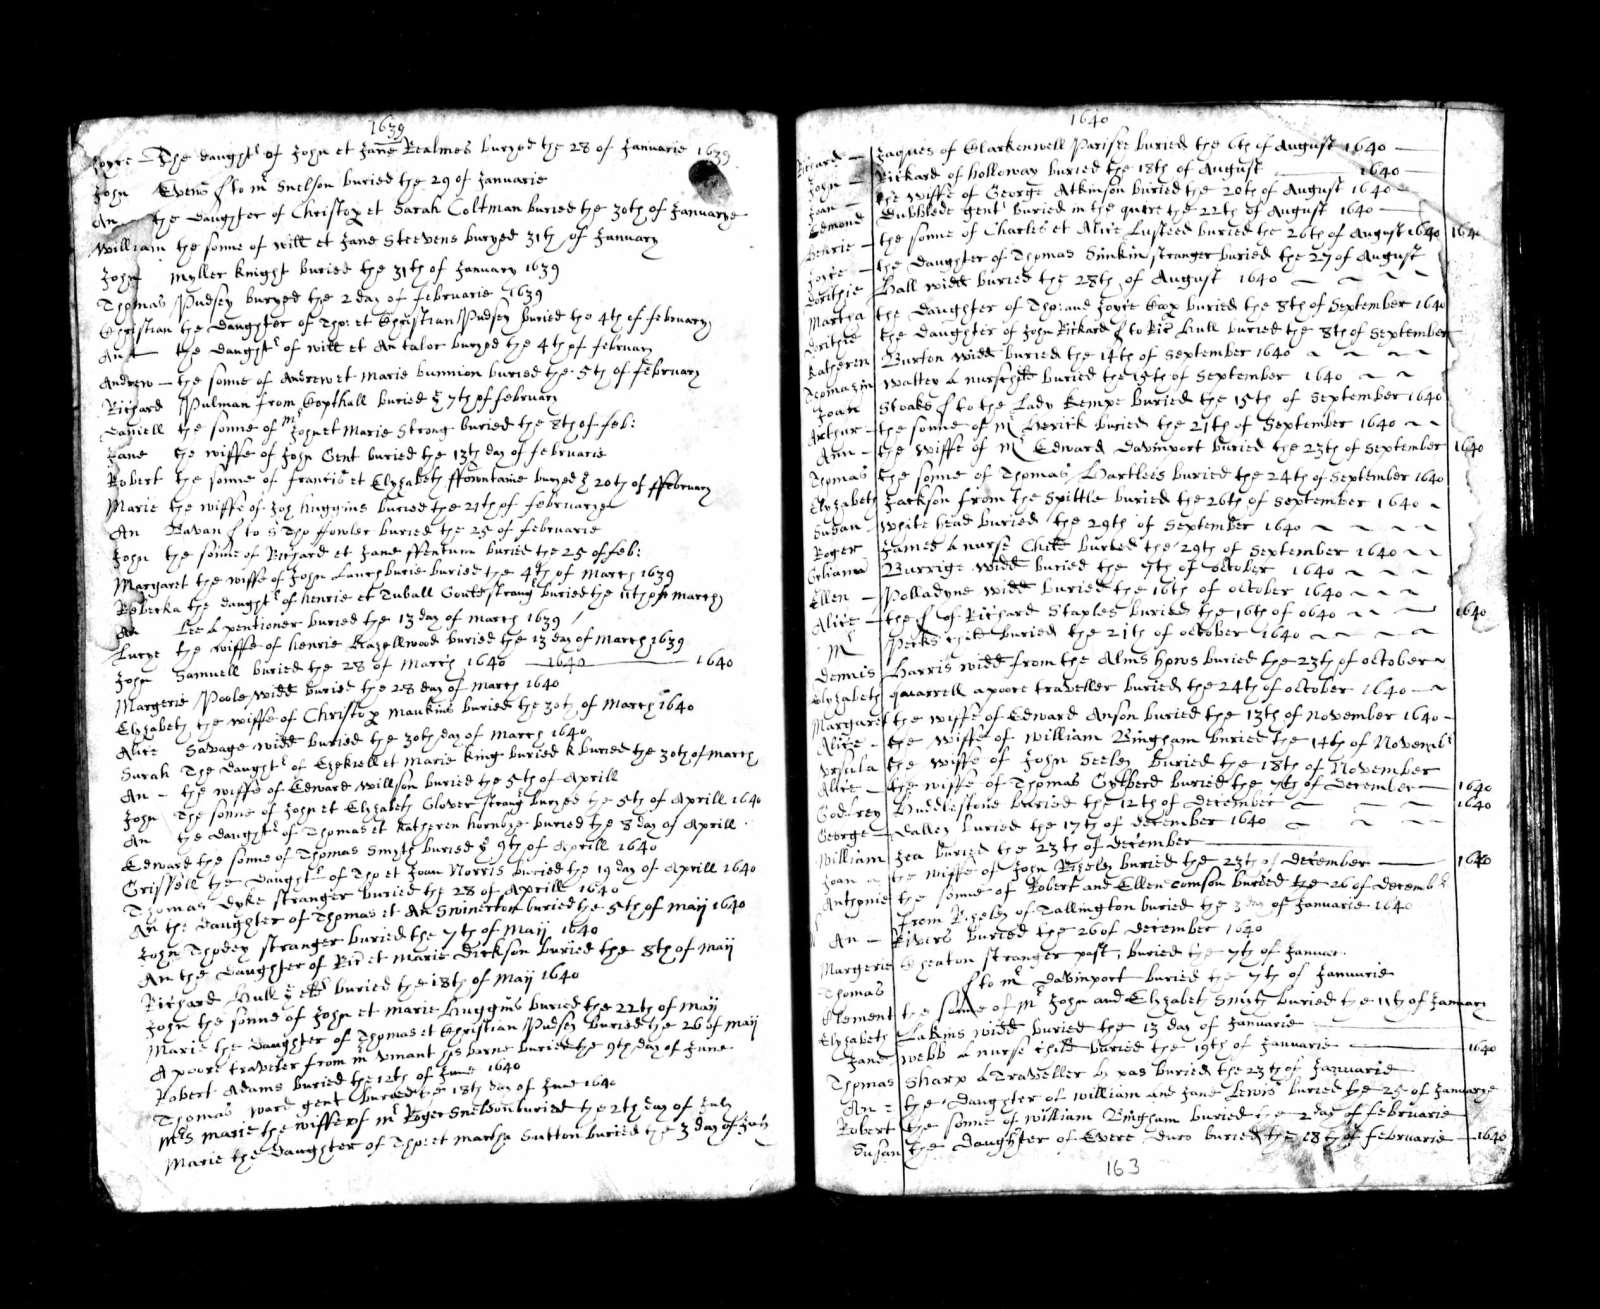 1639
Joyce The daught^r of John et Jane Realmes buryed the 28 of Januarie 1639
John Evens to m^r Snelson buried the 29 of Januarie
An the daughter of Christop et Sarah Coltman buried the 30th of Januarye
William the sonne of Will et Jane Steevens buryed 31th of January
John Myller knight buried the 31th of January 1639
Thomas Pudsey buryed the 2 day of februarie 1639
Christian the Daughter of Tho: et Christian Pudsey buried the 4th of february
An the Daught^r of Will et An Talor buryed the 4th of february
Andrew the sonne of Andrew et Marie Bunnion buried the 5th of february
Richard Pulman from Copthall buried y^e 7th of february
Daniell the sonne of m^r John et Marie Strong buried the 8th of feb:
Jane the wiffe of John Gent buried the 13th day of februarie
Robert the sonne of francis et Elyzabeth ffountaine buryed y^e 20th of ffebruary
Marie the wiffe of Joh Huggins buried the 21th of februarye
An Bavan to S Tho ffowler buried the 25 of februarie
John the sonne of Richard et Jane ffentum buried the 25 of feb:
Margaret the wiffe of John buried the 4th of March 1639
Rebecka the daught^r of Henrie et Tuball strang^r buried the 11th of March
An Lee a pentioner buried the 13 day of March 1639
Lucye the wiffe of Henrie Hazellwood buried the 13 day of March 1639
John Samuell buried the 28 of March 1640 1640 1640
Margerie Poole widd buried the 28 day of March 1640
Elyzabeth the wiffe of Christop Mankins buried the 30th of March 1640
Alice Savage widd buried the 30th day of March 1640
Sarah The Daught^r of Ezekiell et Marie King buried & buried the 30th of March
An the wiffe of Edward Willson buried the 5th of Aprill
John The sonne of John et Elyzabeth Glover strang^r buryed the 5th of Aprill 1640
An the Daught^r of Thomas et Katheren Hornbye buried the 8 day of Aprill
Edward the sonne of Thomas Smyth buried y^e 9th of Aprill 1640
Grissell the Daught^r of Tho et Joan Norris buried the 19 day of Aprill 1640
Thomas Dyke stranger buried the 28 of Aprill 1640
An the Daughter of Thomas et An Swinerton buried the 5th of Maij 1640
John stranger buried the 7th of Maij 1640
An the Daughter of Ric et Marie Dickson buried the 8th of Maij
Richard Hull buried the 18th of Maij 1640
John the sonne of John et Marie Huggins buried the 22th of Maij
Marie the Daughter of Thomas et Christian Pudsey buried the 26 of Maij
A poore traveler from m^r his barne buried the 9th day of June
Robert Adams buried the 12th of June 1640
Thomas Ward gent buried the 18th day of June 1640
M^rs Marie the wiffe of m^r Roger Sneldon buried the 2th day of July
Marie the Daughter of Tho: et Martha Sutton buried the 3 day of July
1640
Richard Jaques of Clarkenwell Parishe buried the 6th of August 1640
John Rickard of Holloway buried the 18th of August 1640
Joan the wiffe of George Atkinson buried the 20th of August 1640
Edmond Dubblede gent^r buried in the quire the 22th of August 1640
Henrie the sonne of Charles et Alice Lusteed buried the 26th of August 1640 1640
Joyce the Daughter of Thomas Simkin stranger buried the 27 of August
Dorithie Hall widd buried the 28th of August 1640
Martha the Daughter of Tho: and Joyce Cox buried the 8th of September 1640
Dorithie the Daughter of John Rickard to Ric Hull buried the 8th of September
Katheren Burton widd buried the 14th of September 1640
Walter a nurschild buried the 15th of September 1640
Joan Stoaks to the Lady Kempe buried the 15th of September 1640
Arthur the sonne of m^r Herick buried the 21th of September 1640
Ann the wiffe of m^r Edward Davinport buried the 23th of September 1640
Thomas the sonne of Thomas Hartlees buried the 24th of September 1640
Elyzabeth Jackson from the Spittle buried the 26th of September 1640
Susan Whitehead buried the 29th of September 1640
Roger James a nurse Child buried the 29th of September 1640
Gilian Burrige widd buried the 7th of October 1640
Ellen Polladyne widd buried the 16th of October 1640
Alice the of Richard Staples buried the 16th of 0640 1640
M^r Perks child buried the 21th of October 1640
Dennis Harris widd from the Alms hows buried the 23th of October
Elyzabeth Quarrell a poore traveller buried the 24th of October 1640
Margaret the wiffe of Edward Anson buried the 13th of November 1640
Alice the wiffe of William Bingham buried the 14th of Novemb^r
Ursula the wiffe of John Seeley buried the 18th of November
Alice the wiffe of Thomas buried the 7th of December 1640
Godfrey Huddlestone buried the 12th of December 1640
George Dalley buried the 17th of December 1640
William Jea buried the 23th of December
Joan the wiffe of John Rigeley buried the 23th of December 1640
Anthonie the sonne of Robert and Ellen Tomson buried the 26 of Decemb^r
from of Tallington buried the 3 day of Januarie 1640
An Rivers buried the 26 of December 1640
Margerie Wheaton stranger buried the 7th of Januar
Thomas to m^r Davinport buried the 7th of Januarie
Clement the sonne of m^r John and Elyzabeth Smyth buried the 11th of January
Elyzabeth Lakins widd buried the 13 day of Januarie
Jane Webb a nurse child buried the 19th of Januarie 1640
Thomas Sharp a Traveller buried the 23th of Januarie
An the Daughter of William and Jane Lewis buried the 25 of Januarye
Robert the sonne of William Bingham buried the 2 day of februarie
Susan the Daughter of buried the 18th of februarie 1640
163